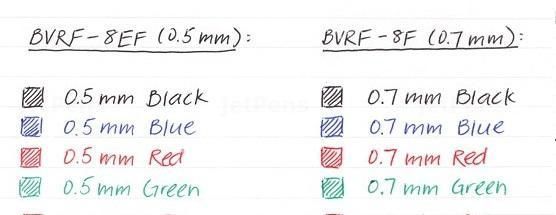 BVRF-8EF (0.5 mm):
0.5 mm Black
0.5 mm Blue
0.5 mm Red
0.5 mm Green
BVRF-8F (0.7 mm):
0.7 mm Black
0.7 mm Blue
0.7 mm Red
0.7 mm Green
JetPens